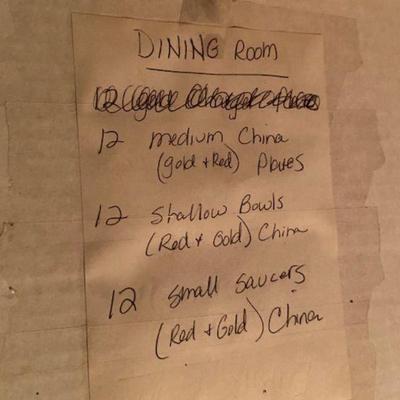 DINING Room
12 medium China
(gold + Red) Plates
12 Shallow Bowls
(Red + Gold) China
12 Small Saucers
(Red + Gold) China